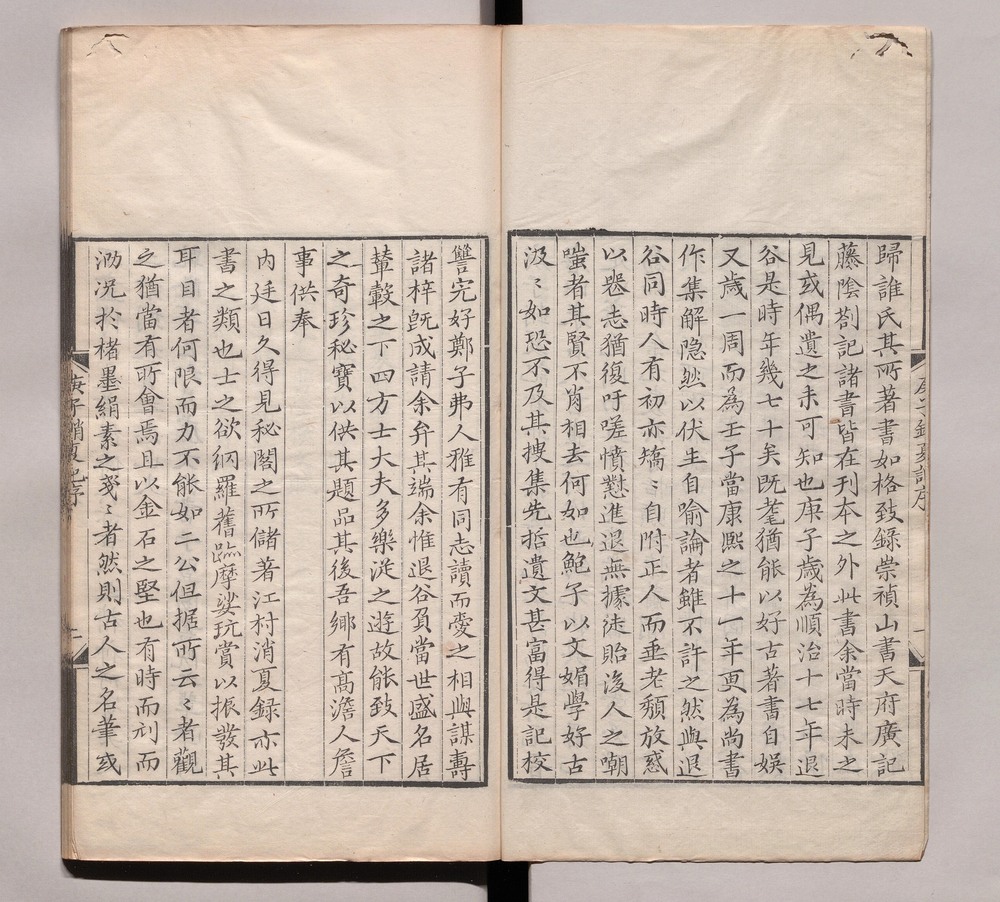 歸誰氏其所著書如格致錄崇禎山書天府廣記
藤陰劄記諸書皆在刊本之外此書余當時未之
見或偶遺之未可知也庚子歲為順治十七年退
谷是時年幾七十矣既耄猶能以好古著書自娱
又歲一周而為壬子當康熙之十一年更為尚書
作集解隐然以伏生自喻論者雖不許之然與退
谷同時人有初亦矯〻自附正人而垂老頽放惑
以器志猶復吁嗟憤懟進退無據徒貽後人之嘲
嗤者其賢不肖相去何如也鮑子以文媚學好古
汲〻如恐不及其搜集先哲遺文甚富得是記校
讐完好鄭子弗人雅有同志讀而愛之相與謀壽
諸梓旣成請余弁其端余惟退谷負當世盛名居
輦轂之下四方士大夫多樂従之遊故能致天下
之奇珍秘寶以供其題品其後吾鄉有高澹人詹
事供奉
内廷日久得見秘閣之所儲著江村消夏録亦此
書之類也士之欲網羅舊蹟摩挲玩賞以振發其
耳目者何限而力不能如二公但据所云〻者觀
之猶當有所會焉且以金石之堅也有時而刓而
泐况於楮墨絹素之戔〻者然則古人之名筆或
庚子銷夏記序
二